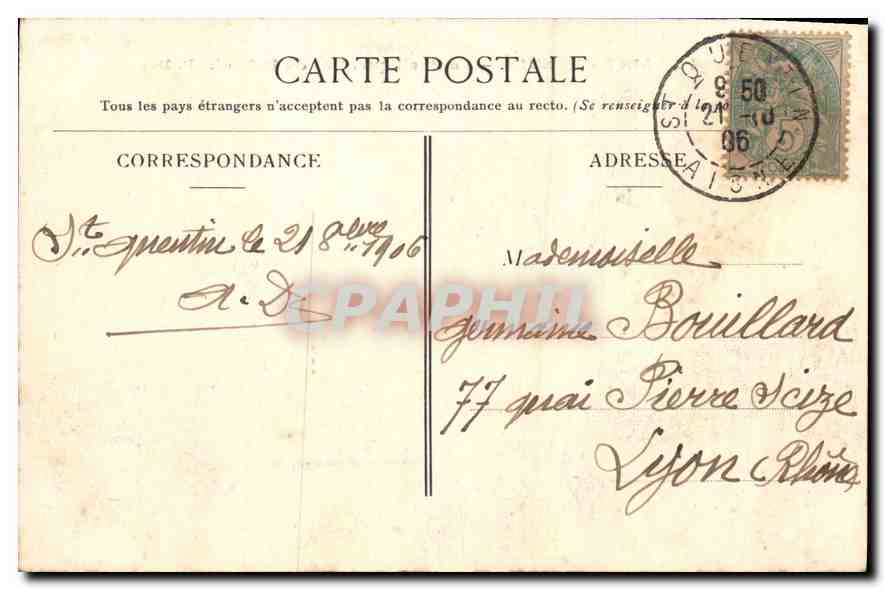 CARTE POSTALE
Tous les pays étrangers n'acceptent pas la correspondance au recto. (Se renseigner à la po
ST QUENTIN
9 50
21 -10
06
AISNE
5
CORRESPONDANCE
ADRESSE
St. Quentin le 21 8bre 1906
A. D.
Mademoiselle
Germaine Bouillard
77 quai Pierre Scize
Lyon (Rhône)
CPAPHIL